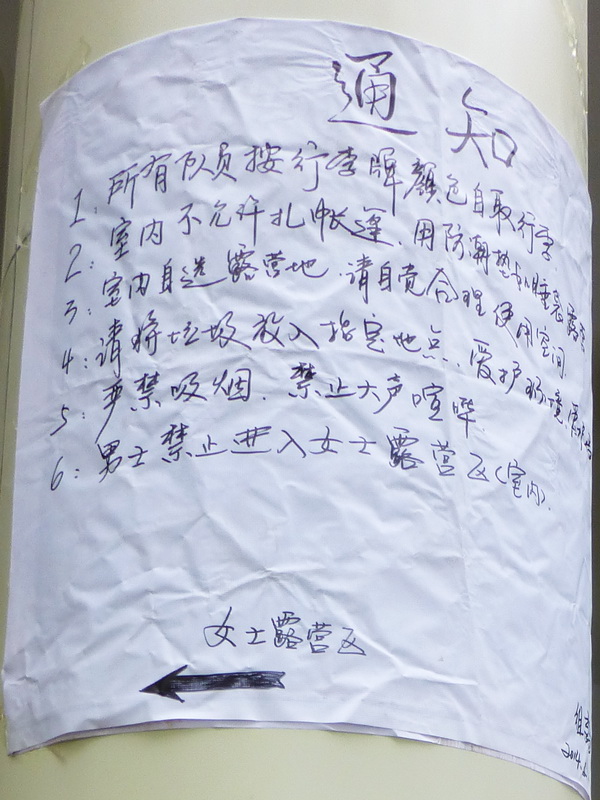 通知
1: 所有队员按行李牌颜色自取行李
2: 室内不允许扎帐蓬、用防潮垫加睡袋露营
3: 室内自选露营地、请自觉合理使用空间
4: 请将垃圾放入指定地点、爱护环境
5: 严禁吸烟、禁止大声喧哗
6: 男士禁止进入女士露营区(室内).
女士露营区
2014.